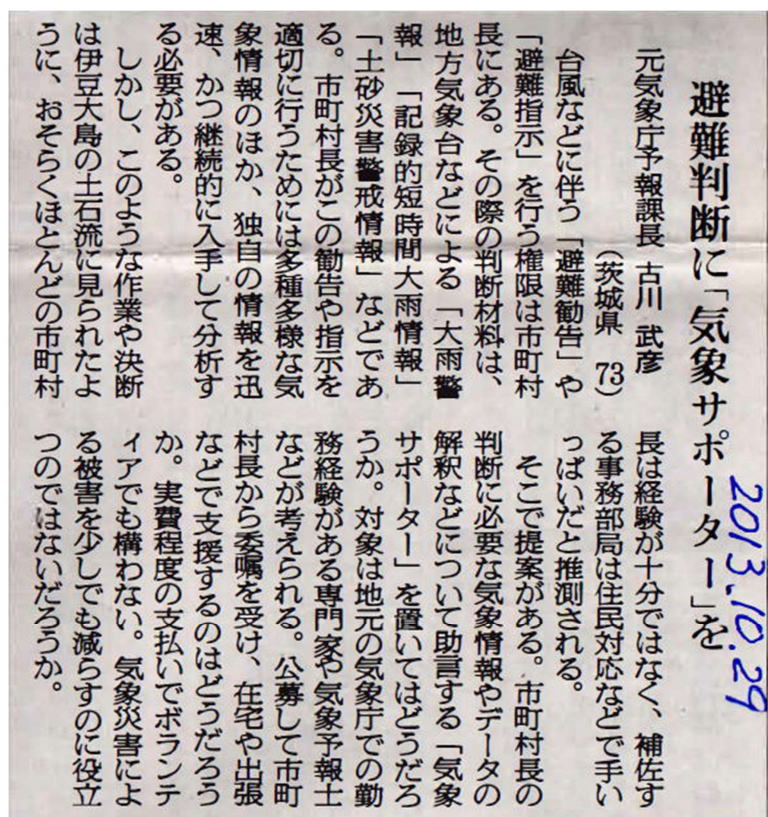 避難判断に「気象サポーター」を
2013.10.29
元気象庁予報課長 古川 武彦
(茨城県 73)
台風などに伴う「避難勧告」や
「避難指示」を行う権限は市町村
長にある。その際の判断材料は、
地方気象台などによる「大雨警
報」「記録的短時間大雨情報」
「土砂災害警戒情報」などであ
る。市町村長がこの勧告や指示を
適切に行うためには多種多様な気
象情報のほか、独自の情報を迅
速、かつ継続的に入手して分析す
る必要がある。
しかし、このような作業や決断
は伊豆大島の土石流に見られたよ
うに、おそらくほとんどの市町村
長は経験が十分ではなく、補佐す
る事務部局は住民対応などで手い
っぱいだと推測される。
そこで提案がある。市町村長の
判断に必要な気象情報やデータの
解釈などについて助言する「気象
サポーター」を置いてはどうだろ
うか。対象は地元の気象庁での勤
務経験がある専門家や気象予報士
などが考えられる。公募して市町
村長から委嘱を受け、在宅や出張
などで支援するのはどうだろう
か。実費程度の支払いでボランテ
ィアでも構わない。気象災害によ
る被害を少しでも減らすのに役立
つのではないだろうか。